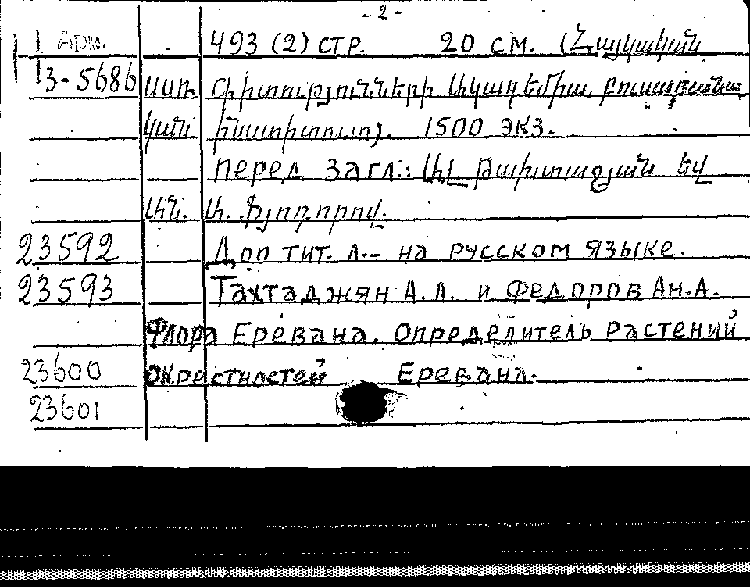 - 2 -
Арм. 493 (2) стр. 20 см. (Հայկական
3-5686 ՍՍՌ Գիտությունների Ակադեմիա, Բուսաբանա
կան ինստիտուտ). 1500 экз.
Перед загл.: Ալ. Թախտաջյան եվ
Ան. Ա. Ֆյոդորով.
23592 Доп тит. л.- на русском языке.
23593 Тахтаджян А.Л. и Федоров Ан.А.
Флора Еревана. Определитель растений
23600 окрестностей Еревана.
23601